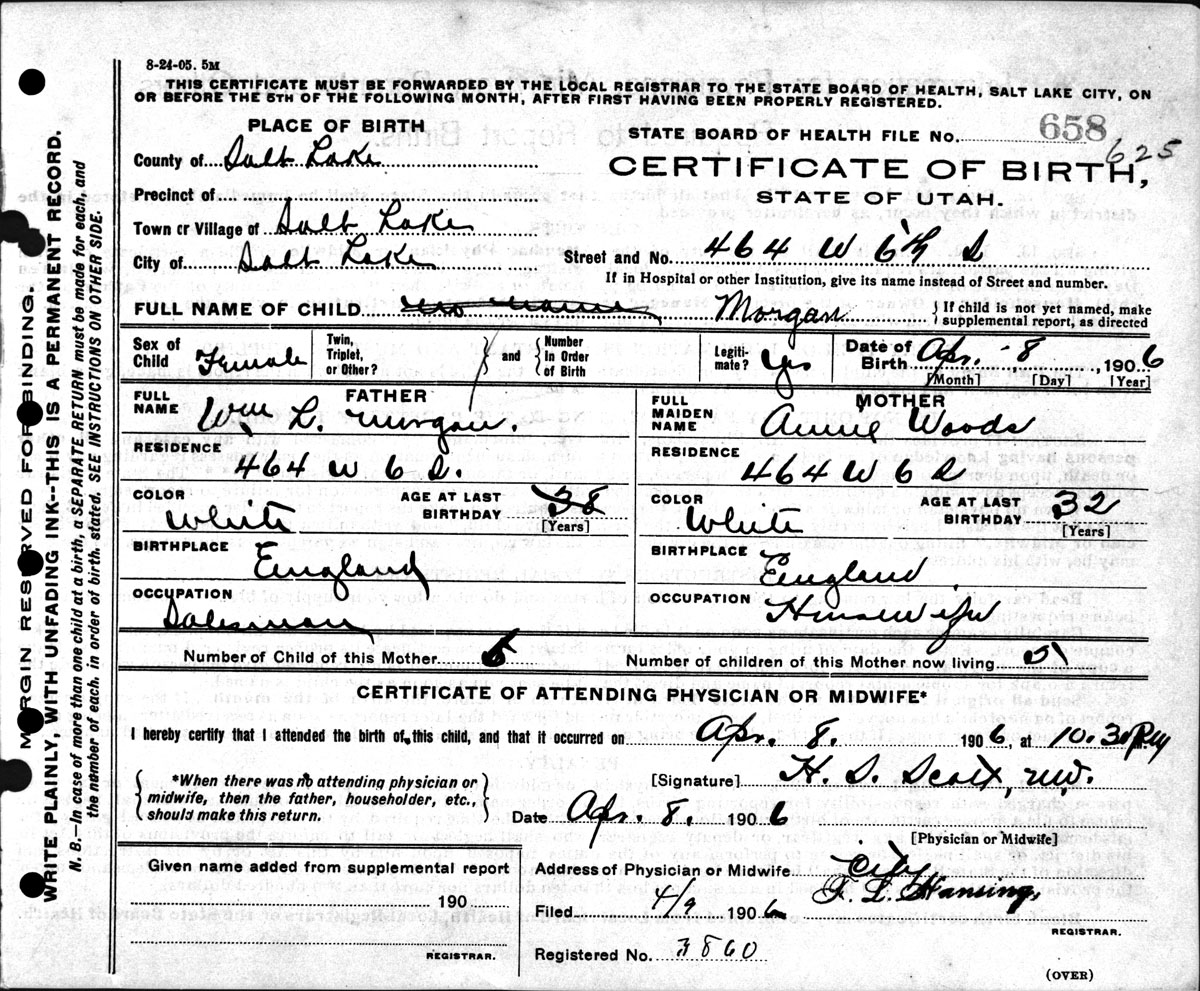 8-24-05. 5M
THIS CERTIFICATE MUST BE FORWARDED BY THE LOCAL REGISTRAR TO THE STATE BOARD OF HEALTH, SALT LAKE CITY, ON
OR BEFORE THE 5TH OF THE FOLLOWING MONTH, AFTER FIRST HAVING BEEN PROPERLY REGISTERED.
PLACE OF BIRTH
STATE BOARD OF HEALTH FILE NO. 658
625
County of Salt Lake
CERTIFICATE OF BIRTH,
Precinct of
STATE OF UTAH.
Town or Village of Salt Lake
City of Salt Lake
Street and No. 464 W 6th S
If in Hospital or other Institution, give its name instead of Street and number.
FULL NAME OF CHILD no name Morgan
{ If child is not yet named, make
supplemental report, as directed
Sex of Child Female
Twin, Triplet, or Other? } and { Number In Order of Birth
Legitimate? Yes
Date of Birth Apr. - 8, 1906
[Month] [Day] [Year]
FATHER
FULL NAME Wm L. Morgan.
RESIDENCE 464 W 6 S.
COLOR White
AGE AT LAST BIRTHDAY 38
[Years]
BIRTHPLACE England
OCCUPATION Salesman
MOTHER
FULL MAIDEN NAME Annie Woods
RESIDENCE 464 W 6 S
COLOR White
AGE AT LAST BIRTHDAY 32
[Years]
BIRTHPLACE England.
OCCUPATION Housewife
Number of Child of this Mother
Number of children of this Mother now living 5
CERTIFICATE OF ATTENDING PHYSICIAN OR MIDWIFE*
I hereby certify that I attended the birth of this child, and that it occurred on Apr. 8. 1906, at 10.30 P.M
{ *When there was no attending physician or
midwife, then the father, householder, etc.,
should make this return. }
[Signature] H. S. Scott, M.D.
Date Apr. 8. 1906
[Physician or Midwife]
Given name added from supplemental report
190
REGISTRAR.
Address of Physician or Midwife City
Filed 4/9 1906
REGISTRAR.
Registered No. 3860
(OVER)
MARGIN RESERVED FOR BINDING
WRITE PLAINLY, WITH UNFADING INK--THIS IS A PERMANENT RECORD.
N. B.--In case of more than one child at a birth, a SEPARATE RETURN must be made for each, and
the number of each, in order of birth, stated. SEE INSTRUCTIONS ON OTHER SIDE.